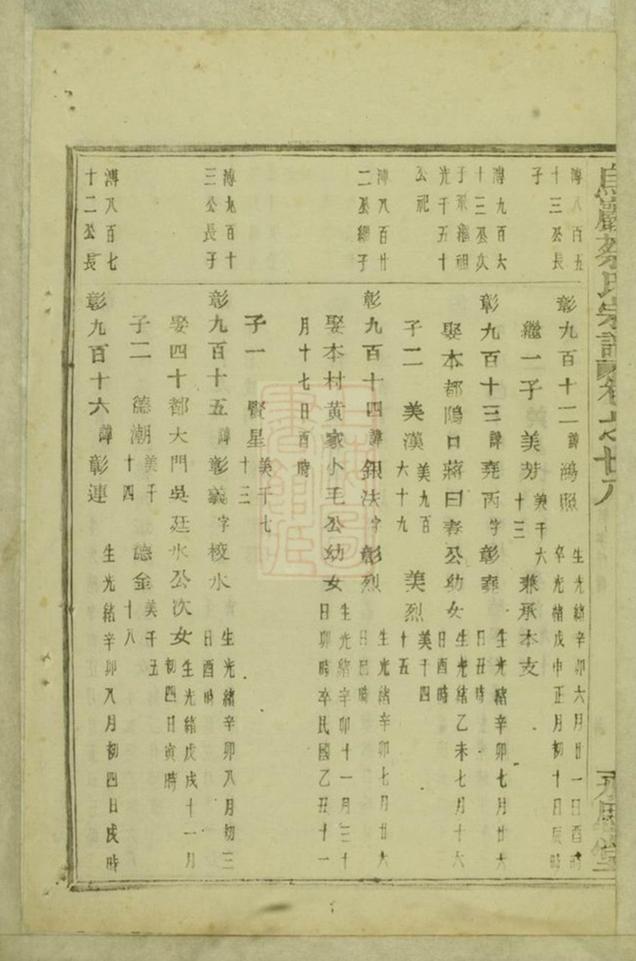 鳥巖蔡氏宗譜卷之廿八
溥八百五十三公長子
彰九百十二諱鴻照 生光緒辛卯六月廿一日酉時 卒光緒戊申正月初十日辰時
繼一子 美芳美千六十三 兼承本支
溥九百六十三公次子承繼祖光千五十公祀
彰九百十三諱堯丙字彰堯 生光緒辛卯七月廿六日丑時
娶本都隝口蔣曰春公幼女 生光緒乙未七月十六日酉時
子二 美漢美九百六十九 美烈美千四十五
溥八百廿二公繼子
彰九百十四諱銀法字彰烈 生光緒辛卯七月廿六日巳時
娶本村黃家小毛公幼女 生光緒辛卯十一月三十日卯時卒民國乙丑十一
月十七日酉時
子一 賢星美千七十三
溥九百十三公長子
彰九百十五諱彰義字棱水 生光緒辛卯八月初三日酉時
娶四十都大門吳廷水公次女 生光緒戊戌十一月初四日寅時
子二 德潮美千十四 德金美千五十八
溥八百七十二公長
彰九百十六諱彰連 生光緒辛卯八月初四日戌時